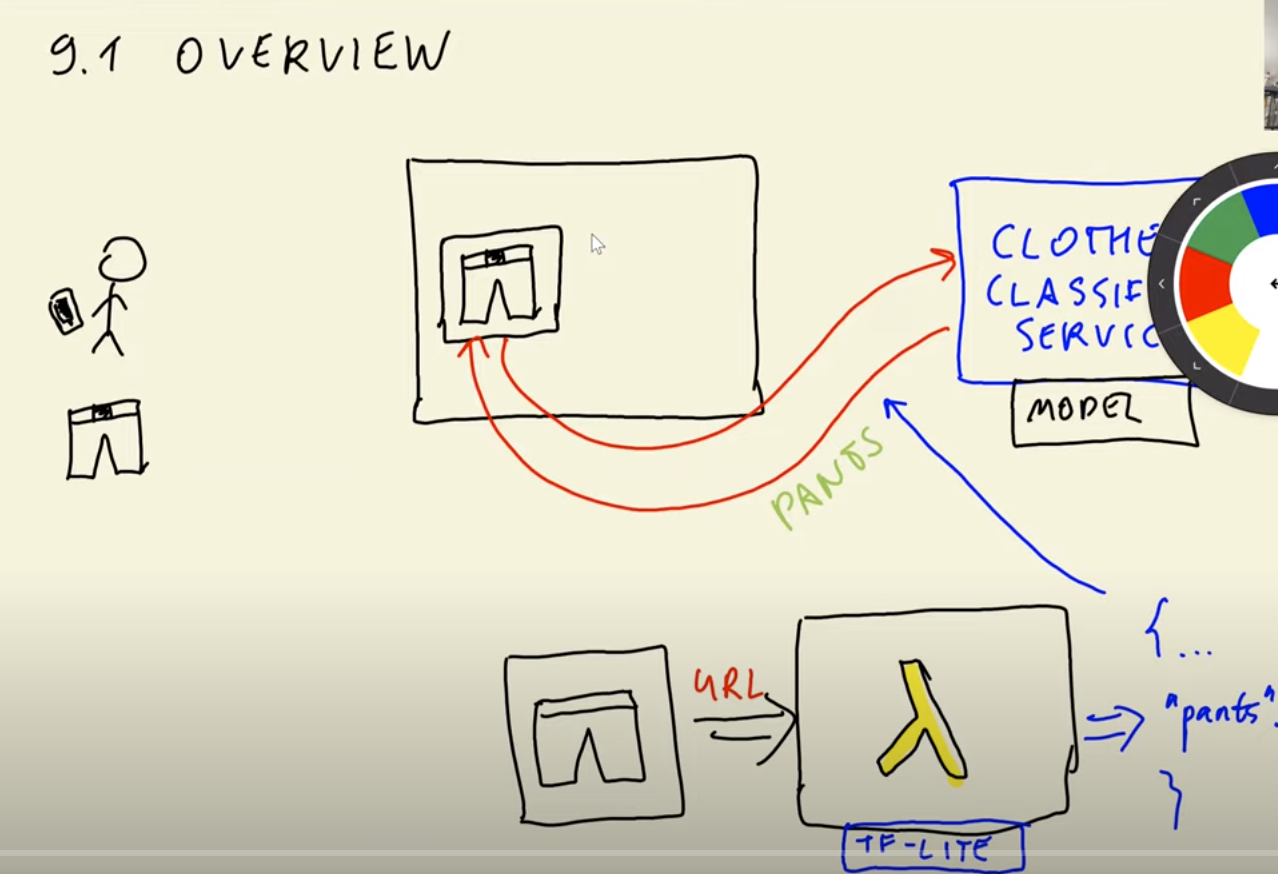 9.1 OVERVIEW
CLOTHE
CLASSIF
SERVIC
MODEL
PANTS
{...
URL
"pants"
}
λ
TF-LITE